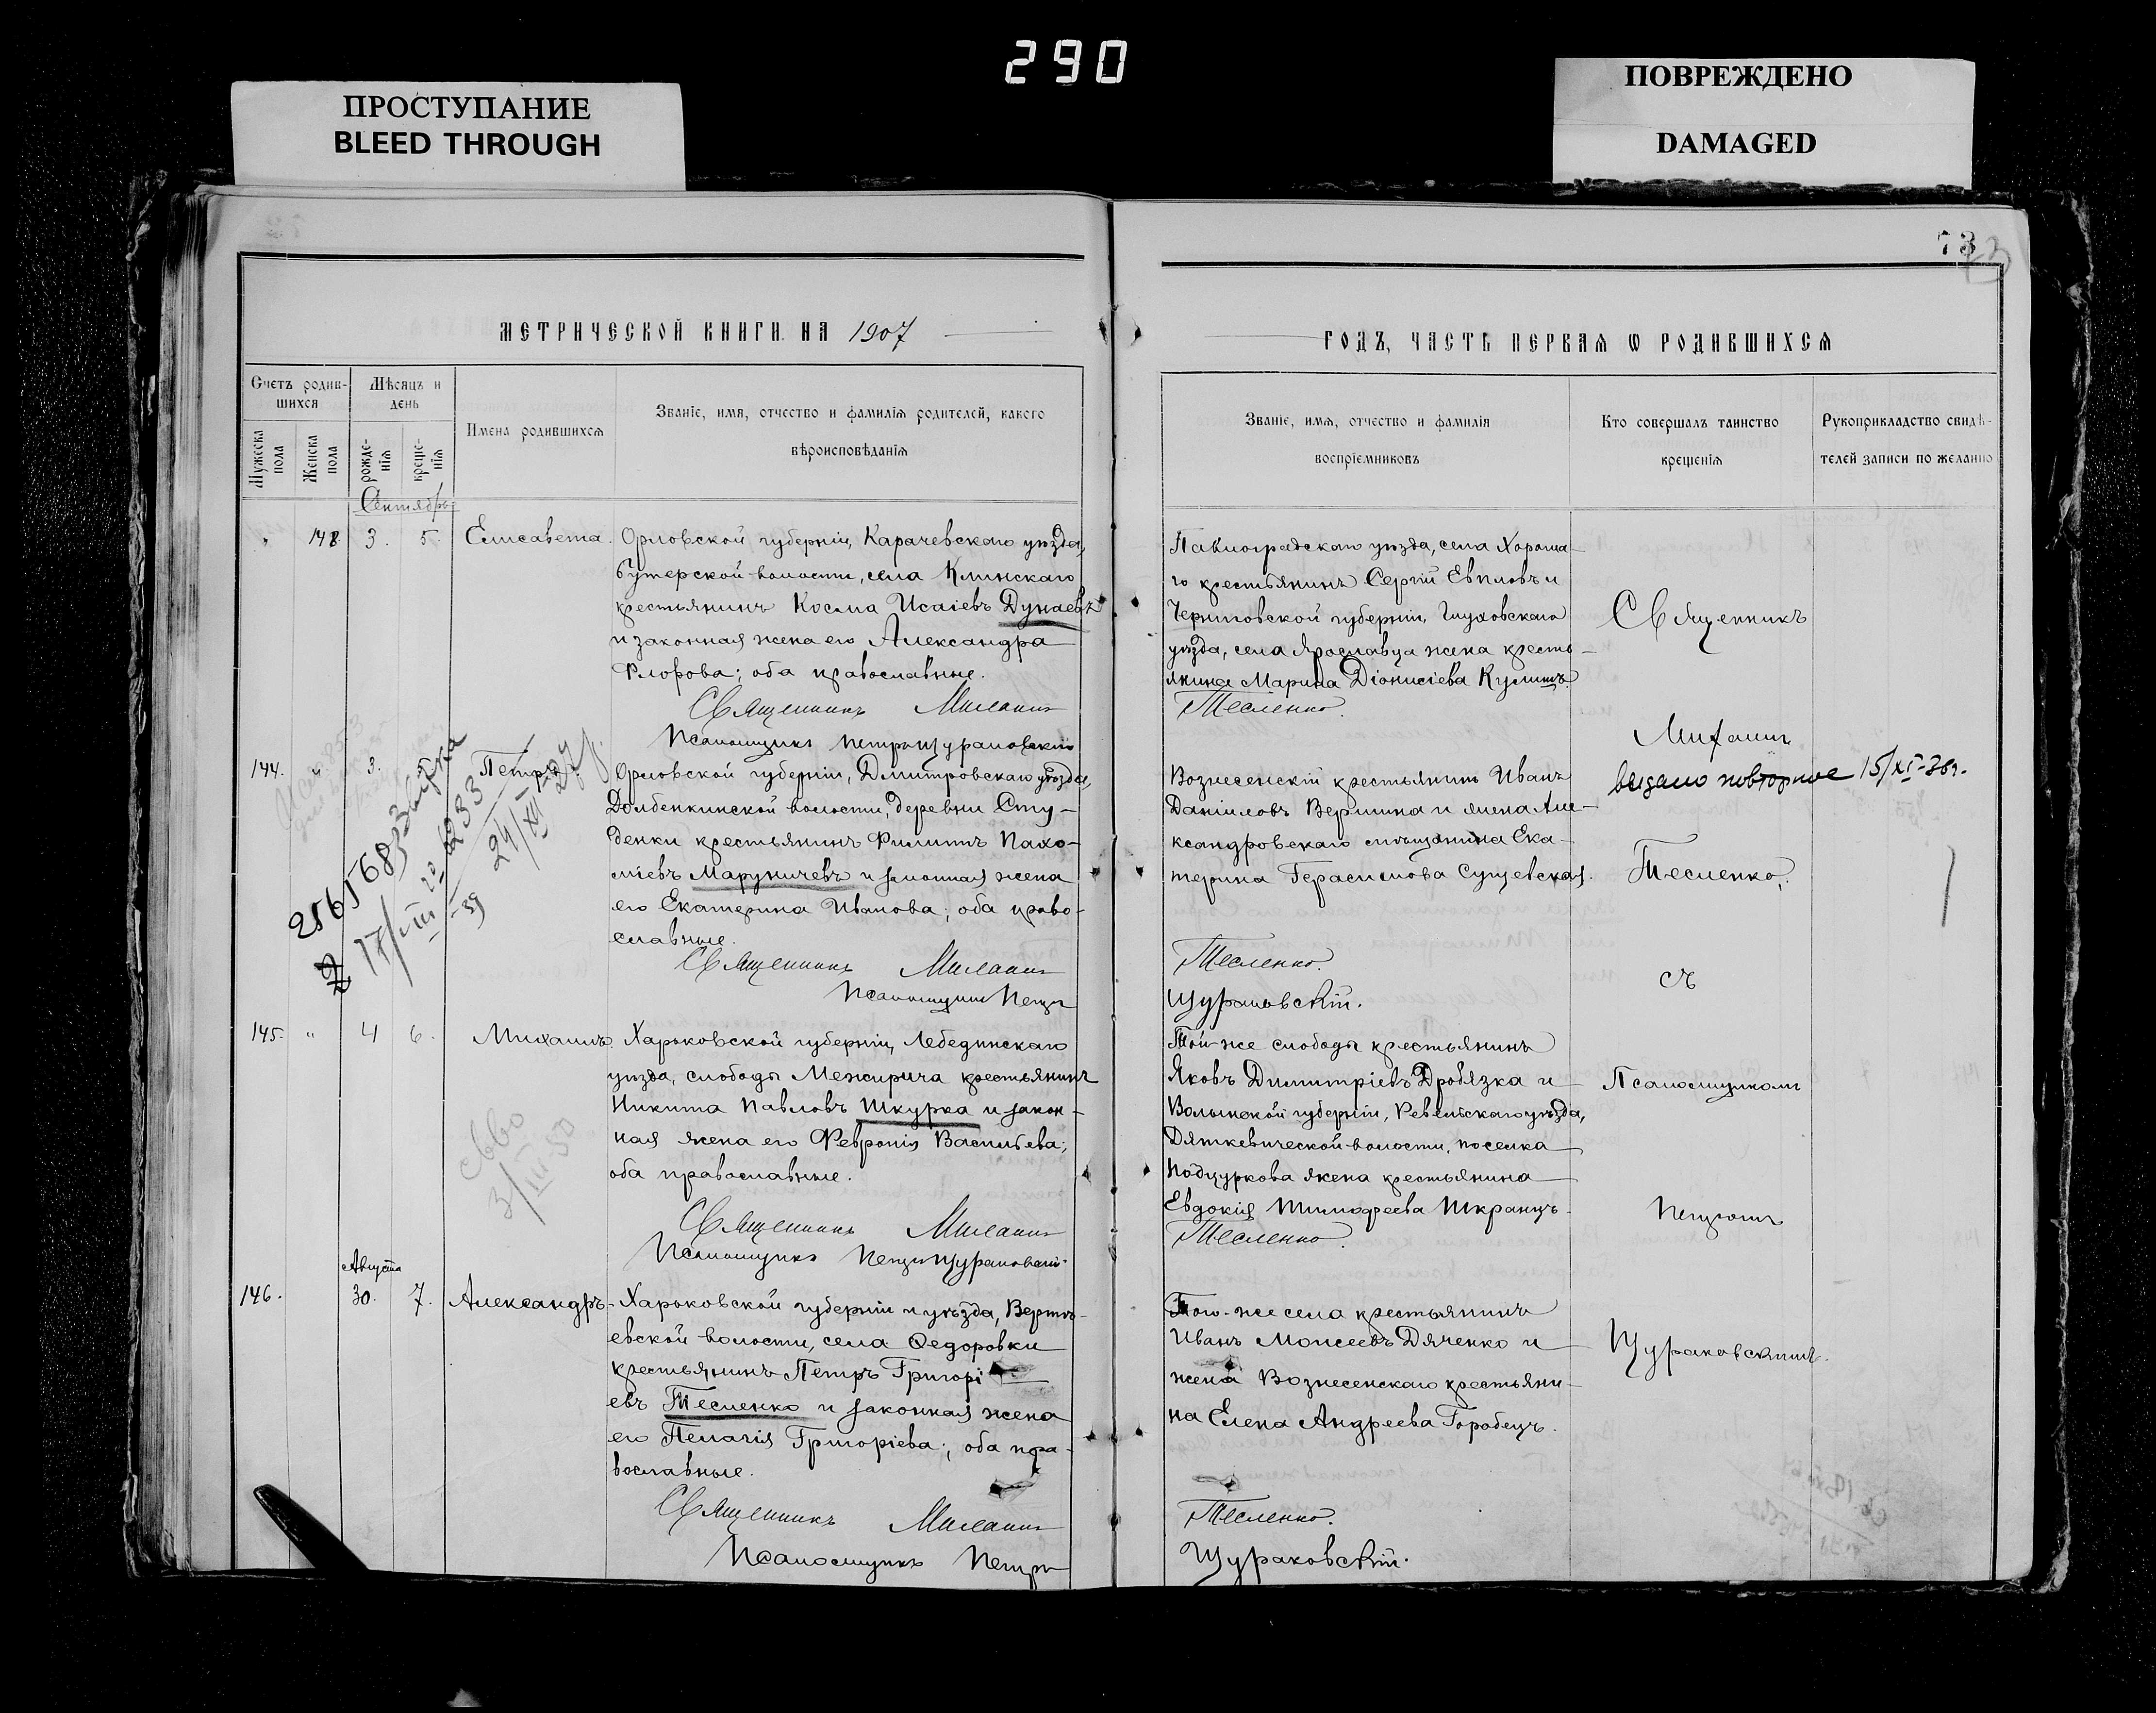 290
ПРОСТУПАНИЕ
BLEED THROUGH
ПОВРЕЖДЕНО
DAMAGED
73
МЕТРИЧЕСКОЙ КНИГИ НА 1907
ГОДЪ, ЧАСТЬ ПЕРВАЯ Ѡ РОДИВШИХСЯ
Счетъ родив-
шихся
Мужеска
пола
Женска
пола
Мѣсяцъ и
день
рожде-
нія
креще-
нія
Имена родившихся
Званіе, имя, отчество и фамилія родителей, какого
вѣроисповѣданія
Званіе, имя, отчество и фамилія
воспріемниковъ
Кто совершалъ таинство
крещенія
Рукоприкладство свидѣ-
телей записи по желанію
Сентябрь
148 3. 5. Елисавета.
Орловской губерніи, Карачевскаго уѣзда,
волости, села Клинскаго
крестьянинъ Косма Исаіевъ Дунаевъ
и законная жена его Александра
Флорова; оба православные.
Священникъ
Псаломщикъ Петръ Щураковскій
Павлоградскаго уѣзда, села Хороша-
го крестьянинъ Сергій Евпловъ и
Черниговской губерніи, Глуховскаго
уѣзда, села Ярославца жена кресть-
янина Марина Діонисіева Кулишъ.
Тесленко.
Священникъ
Михаилъ
выдано повторное 15/XI-36г.
Тесленко,
съ
Псаломщикомъ
Петромъ
Щураковскимъ.
144. " 3. 5 Петръ.
Орловской губерніи, Дмитровскаго уѣзда,
Долбенкинской волости, деревни Сту-
денки крестьянинъ Филиппъ Пахо-
міевъ Маруничевъ и законная жена
его Екатерина Иванова; оба право-
славные.
Священникъ
Псаломщикъ Петръ
Вознесенскій крестьянинъ Иванъ
Даніиловъ Вершина и жена Але-
ксандровскаго мѣщанина Ека-
терина Герасимова Сущевская.
Тесленко.
Щураковскій.
145. " 4 6. Михаилъ.
Харьковской губерніи, Лебединскаго
уѣзда, слободы Межирича крестьянинъ
Никита Павловъ Шкурка и закон-
ная жена его Февронія Васильева;
оба православные.
Священникъ
Псаломщикъ Петръ Щураковскій.
Той-же слободы крестьянинъ
Яковъ Димитріевъ Дробязка и
Волынской губерніи, уѣзда,
Дяткевической волости, поселка
жена крестьянина
Евдокія Тимофеева Шкранцъ.
Тесленко.
Августа
146. 30. 7. Александръ.
Харьковской губерніи и уѣзда,
евской волости, села Ѳедоровки
крестьянинъ Петръ Григорі
евъ Тесленко и законная жена
его Пелагія Григоріева; оба пра-
вославные.
Священникъ
Псаломщикъ Петръ
Того-же села крестьянинъ
Иванъ Моисеевъ Дяченко и
жена Вознесенскаго крестьяни-
на Елена Андреева Горобецъ.
Тесленко.
Щураковскій.